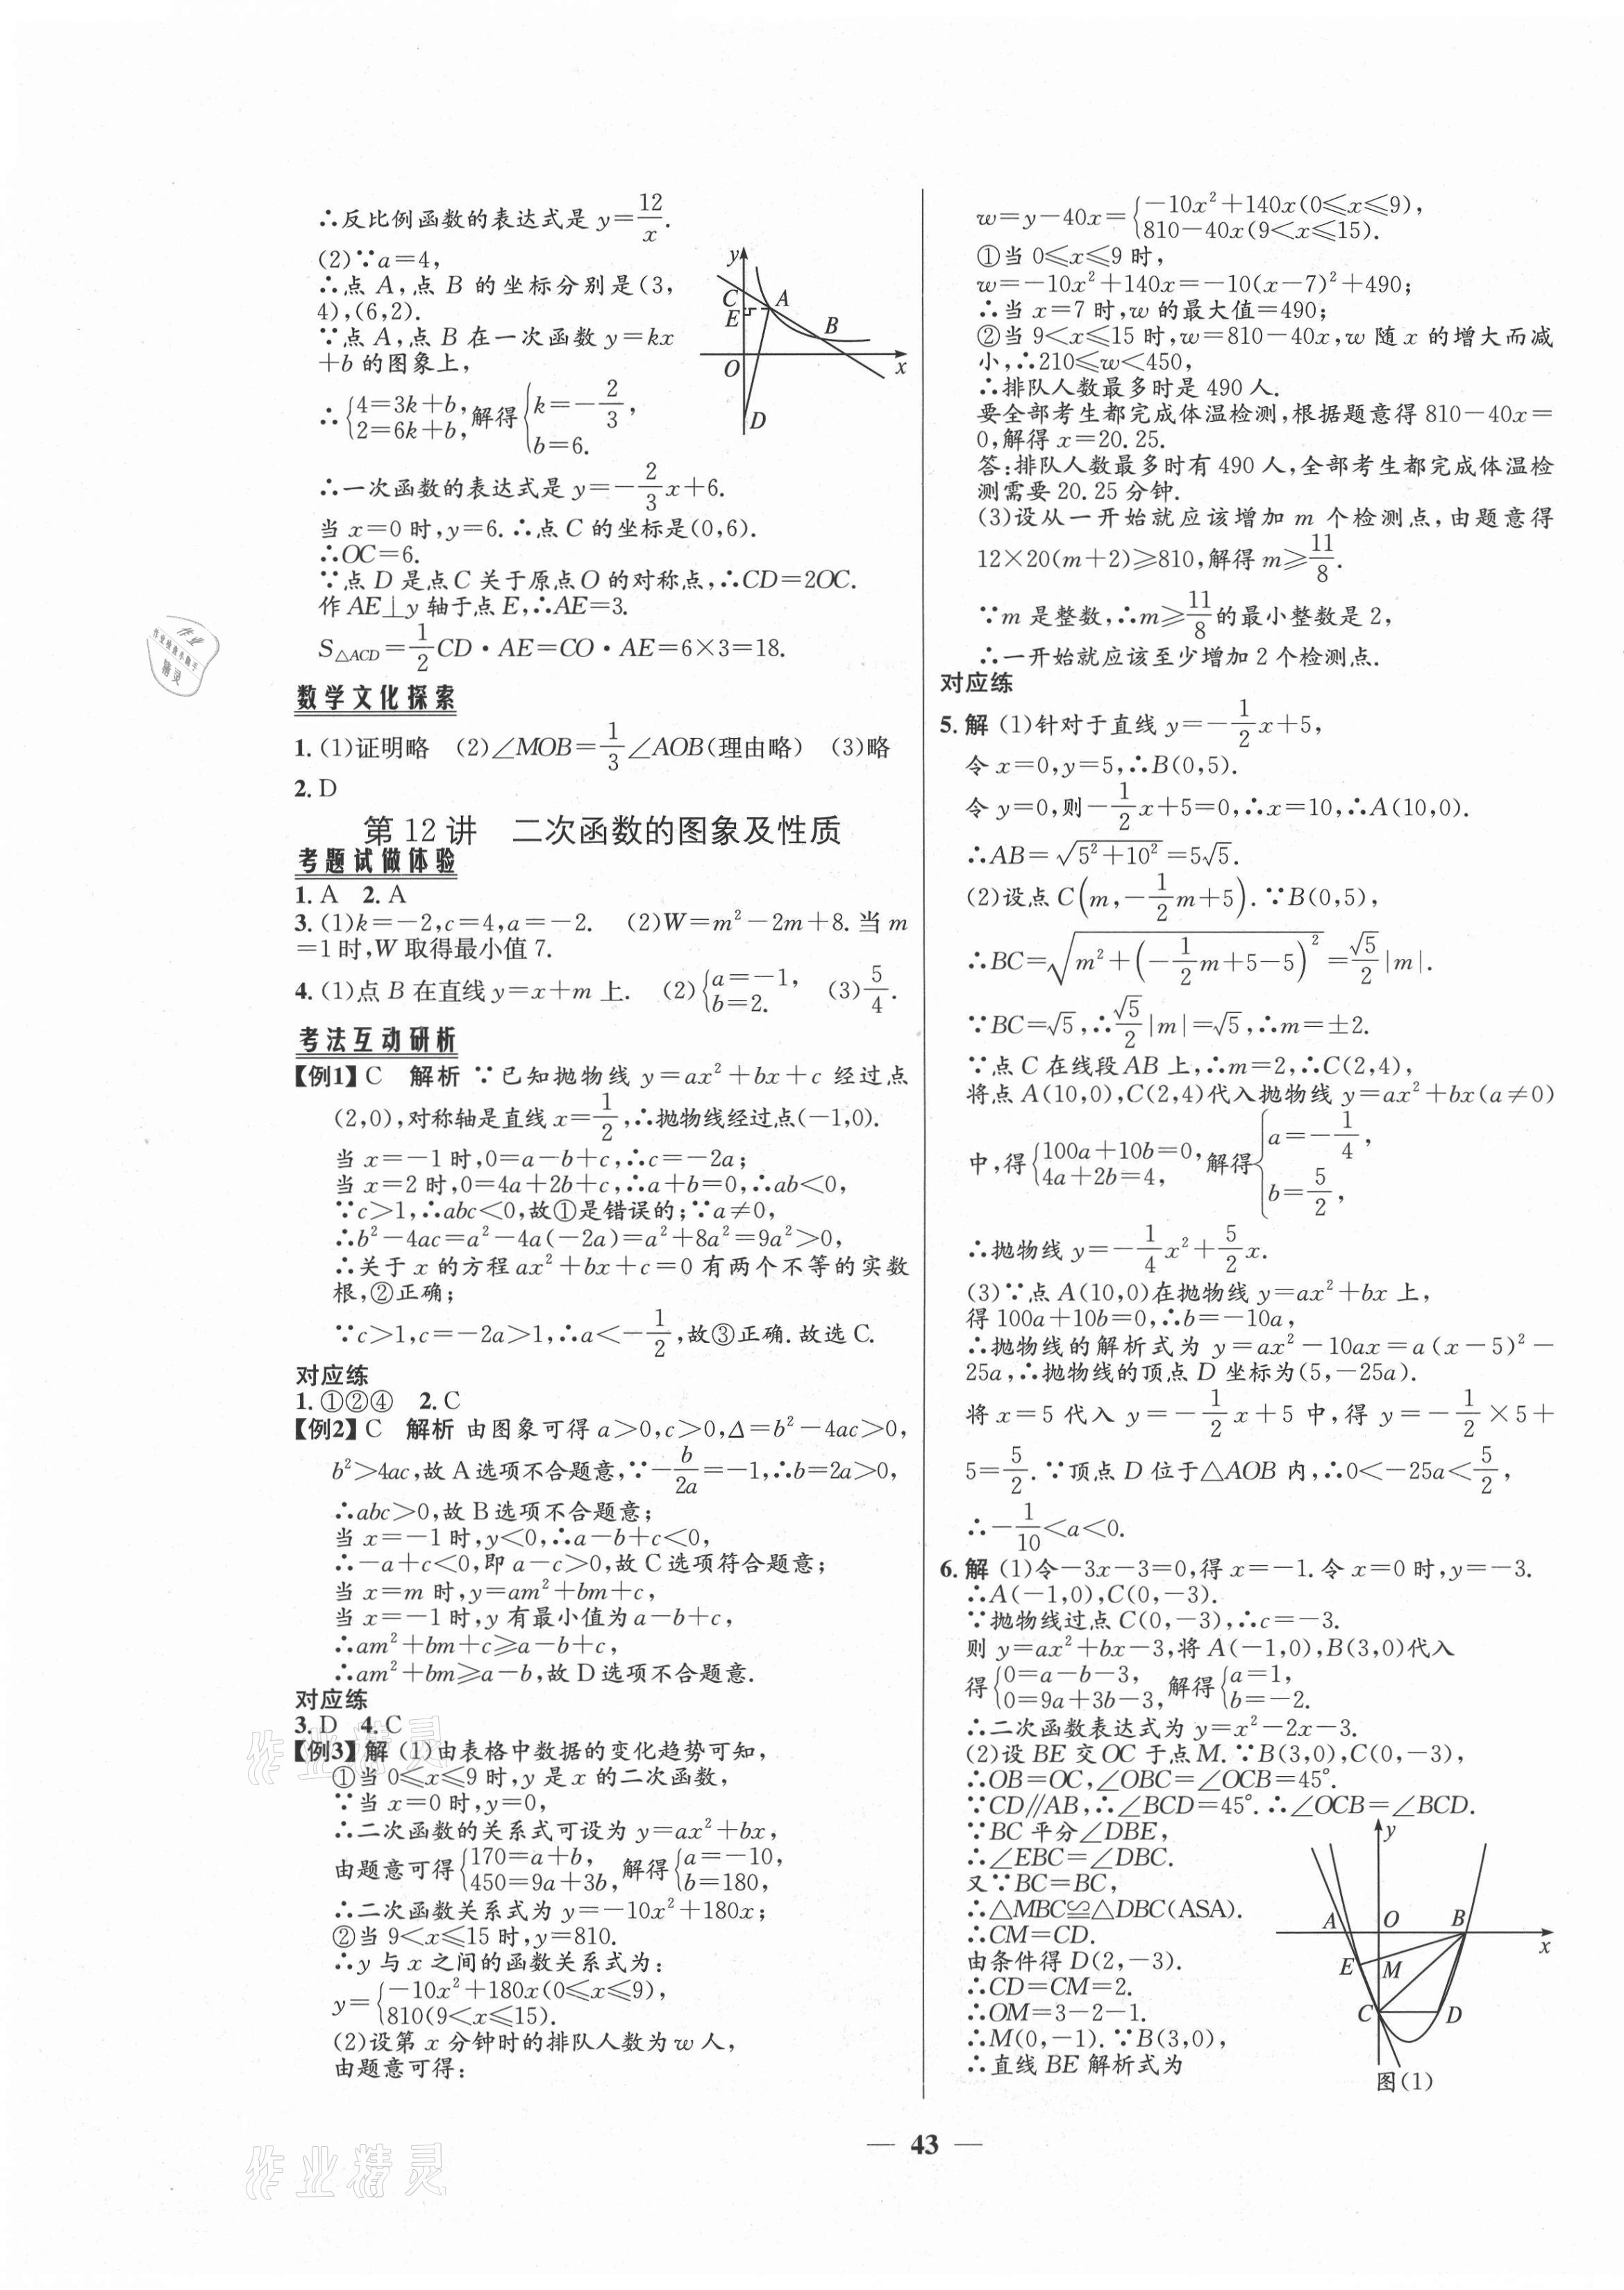 ∴反比例函数的表达式是 y=12/x.
(2)∵a=4,
∴点 A,点 B 的坐标分别是(3,
4),(6,2).
∵点 A,点 B 在一次函数 y=kx
+b 的图象上,
∴{4=3k+b, 2=6k+b, 解得{k=-2/3, b=6.
∴一次函数的表达式是 y=-2/3x+6.
当 x=0 时,y=6.∴点 C 的坐标是(0,6).
∴OC=6.
∵点 D 是点 C 关于原点 O 的对称点,∴CD=2OC.
作 AE⊥y 轴于点 E,∴AE=3.
S△ACD=1/2CD·AE=CO·AE=6×3=18.
y
C
A
E
B
O
x
D
数学文化探索
1.(1)证明略 (2)∠MOB=1/3∠AOB(理由略) (3)略
2.D
第 12 讲 二次函数的图象及性质
考题试做体验
1.A 2.A
3.(1)k=-2,c=4,a=-2. (2)W=m²-2m+8.当 m
=1时,W 取得最小值 7.
4.(1)点 B 在直线 y=x+m 上. (2){a=-1, b=2. (3)5/4.
考法互动研析
【例1】C 解析 ∵已知抛物线 y=ax²+bx+c 经过点
(2,0),对称轴是直线 x=1/2,∴抛物线经过点(-1,0).
当 x=-1 时,0=a-b+c,∴c=-2a;
当 x=2 时,0=4a+2b+c,∴a+b=0,∴ab<0,
∵c>1,∴abc<0,故①是错误的;∵a≠0,
∴b²-4ac=a²-4a(-2a)=a²+8a²=9a²>0,
∴关于 x 的方程 ax²+bx+c=0 有两个不等的实数
根,②正确;
∵c>1,c=-2a>1,∴a<-1/2,故③正确.故选 C.
对应练
1.①②④ 2.C
【例2】C 解析 由图象可得 a>0,c>0,Δ=b²-4ac>0,
b²>4ac,故 A 选项不合题意,∵-b/2a=-1,∴b=2a>0,
∴abc>0,故 B 选项不合题意;
当 x=-1 时,y<0,∴a-b+c<0,
∴-a+c<0,即 a-c>0,故 C 选项符合题意;
当 x=m 时,y=am²+bm+c,
当 x=-1 时,y 有最小值为 a-b+c,
∴am²+bm+c≥a-b+c,
∴am²+bm≥a-b,故 D 选项不合题意.
对应练
3.D 4.C
【例3】解 (1)由表格中数据的变化趋势可知,
①当 0≤x≤9 时,y 是 x 的二次函数,
∵当 x=0 时,y=0,
∴二次函数的关系式可设为 y=ax²+bx,
由题意可得{170=a+b, 450=9a+3b, 解得{a=-10, b=180,
∴二次函数关系式为 y=-10x²+180x;
②当 9<x≤15 时,y=810.
∴y 与 x 之间的函数关系式为:
y={-10x²+180x(0≤x≤9), 810(9<x≤15).
(2)设第 x 分钟时的排队人数为 w 人,
由题意可得:
w=y-40x={-10x²+140x(0≤x≤9), 810-40x(9<x≤15).
①当 0≤x≤9 时,
w=-10x²+140x=-10(x-7)²+490;
∴当 x=7 时,w 的最大值=490;
②当 9<x≤15 时,w=810-40x,w 随 x 的增大而减
小,∴210≤w<450,
∴排队人数最多时是 490 人.
要全部考生都完成体温检测,根据题意得 810-40x=
0,解得 x=20.25.
答:排队人数最多时有 490 人,全部考生都完成体温检
测需要 20.25 分钟.
(3)设从一开始就应该增加 m 个检测点,由题意得
12×20(m+2)≥810,解得 m≥11/8.
∵m 是整数,∴m≥11/8的最小整数是 2,
∴一开始就应该至少增加 2 个检测点.
对应练
5.解 (1)针对于直线 y=-1/2x+5,
令 x=0,y=5,∴B(0,5).
令 y=0,则-1/2x+5=0,∴x=10,∴A(10,0).
∴AB=√(5²+10²)=5√5.
(2)设点 C(m,-1/2m+5).∵B(0,5),
∴BC=√(m²+(-1/2m+5-5)²)=√5/2|m|.
∵BC=√5,∴√5/2|m|=√5,∴m=±2.
∵点 C 在线段 AB 上,∴m=2,∴C(2,4),
将点 A(10,0),C(2,4)代入抛物线 y=ax²+bx(a≠0)
中,得{100a+10b=0, 4a+2b=4, 解得{a=-1/4, b=5/2,
∴抛物线 y=-1/4x²+5/2x.
(3)∵点 A(10,0)在抛物线 y=ax²+bx 上,
得 100a+10b=0,∴b=-10a,
∴抛物线的解析式为 y=ax²-10ax=a(x-5)²-
25a,∴抛物线的顶点 D 坐标为(5,-25a).
将 x=5 代入 y=-1/2x+5 中,得 y=-1/2×5+
5=5/2.∵顶点 D 位于△AOB 内,∴0<-25a<5/2,
∴-1/10<a<0.
6.解 (1)令-3x-3=0,得 x=-1.令 x=0 时,y=-3.
∴A(-1,0),C(0,-3).
∵抛物线过点 C(0,-3),∴c=-3.
则 y=ax²+bx-3,将 A(-1,0),B(3,0)代入
得{0=a-b-3, 0=9a+3b-3, 解得{a=1, b=-2.
∴二次函数表达式为 y=x²-2x-3.
(2)设 BE 交 OC 于点 M.∵B(3,0),C(0,-3),
∴OB=OC,∠OBC=∠OCB=45°.
∵CD∥AB,∴∠BCD=45°.∴∠OCB=∠BCD.
∵BC 平分∠DBE,
∴∠EBC=∠DBC.
又∵BC=BC,
∴△MBC≌△DBC(ASA).
∴CM=CD.
由条件得 D(2,-3).
∴CD=CM=2.
∴OM=3-2-1.
∴M(0,-1).∵B(3,0),
∴直线 BE 解析式为
y
A
O
B
x
E
M
C
D
图(1)
— 43 —
作业
作业检查小助手
精灵
作业精灵
作业精灵